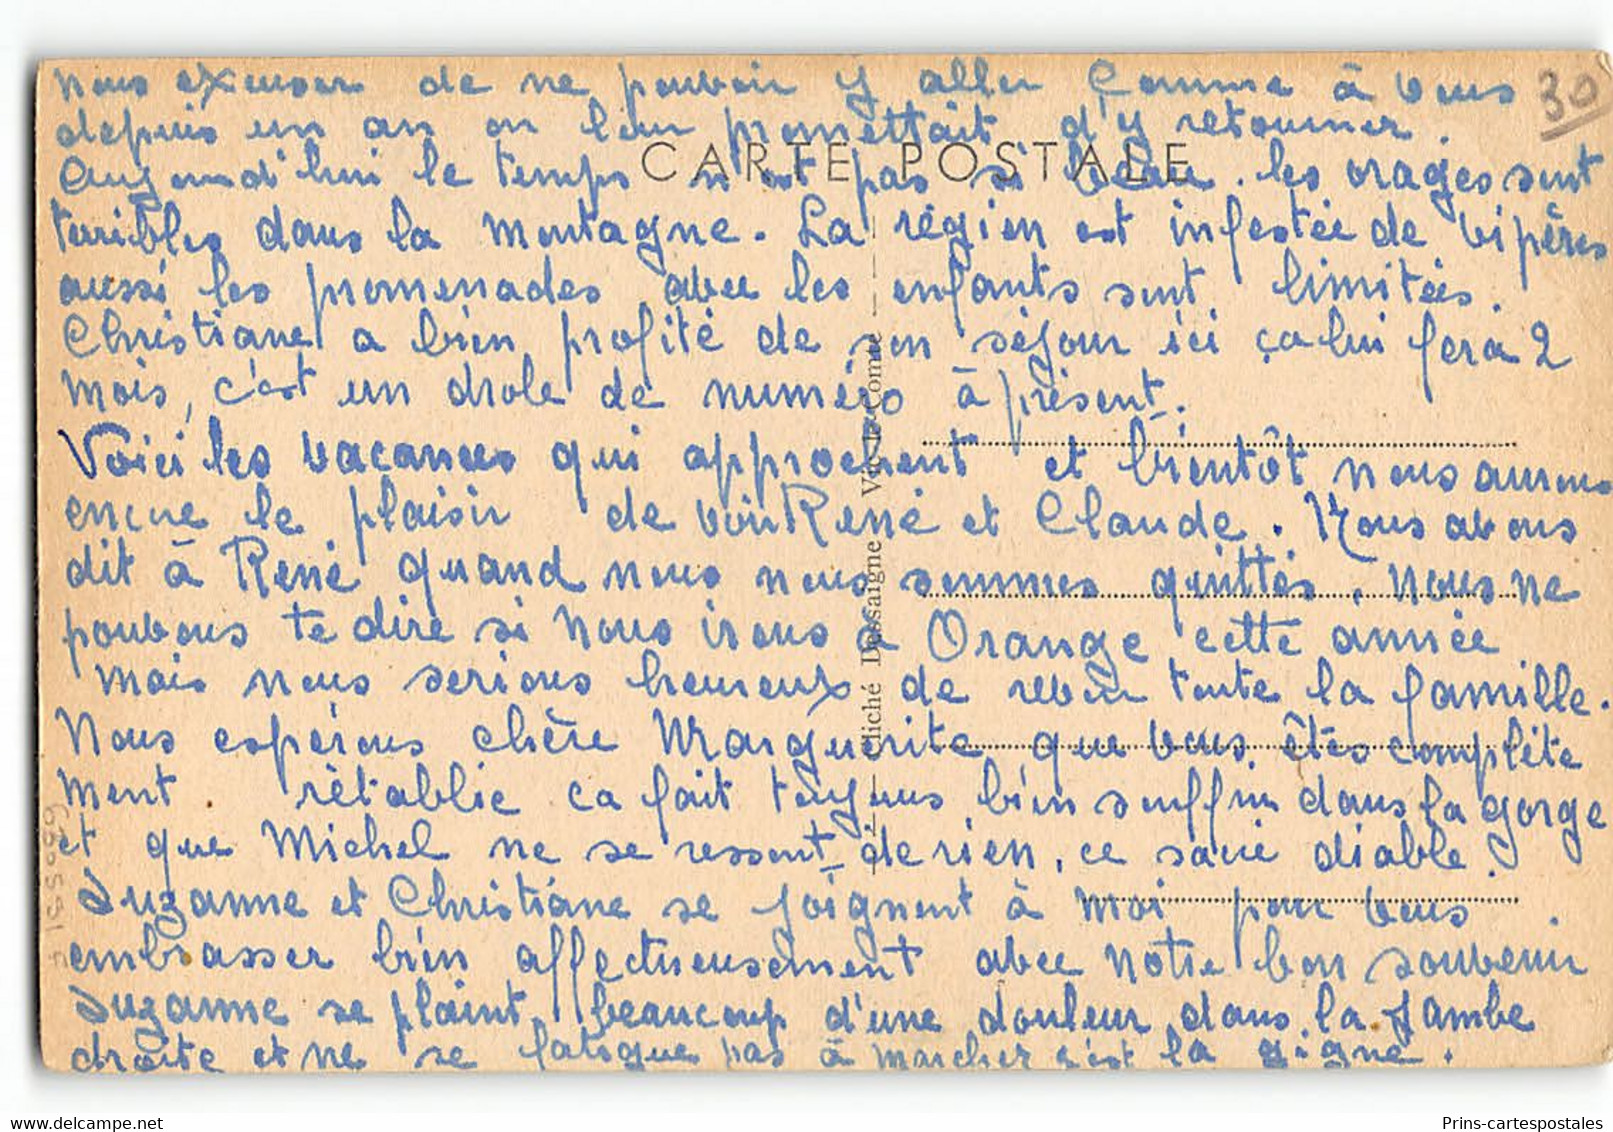 nous excuser de ne pouvoir y aller Comme à vous
30
depuis un an on leur promettait d'y retourner.
CARTE POSTALE
Aujourd'hui le temps n'est pas si beau. les orages sont
terribles dans la montagne. La région est infestée de vipères
aussi les promenades avec les enfants sont limitées.
Christiane a bien profité de son séjour ici ça lui fera 2
mois, c'est un drole de numéro à présent.
Voici les vacances qui approchent et bientôt nous aurons
encore le plaisir de voir René et Claude. Nous avons
dit à René quand nous nous sommes quittés. Nous ne
pouvons te dire si nous irons à Orange cette année
mais nous serions heureux de revoir toute la famille.
Nous espérons chère Marguerite que vous êtes complète
ment rétablie ca fait toujours bien souffrir dans la gorge
et que Michel ne se ressent de rien, ce sacré diable.
Suzanne et Christiane se joignent à moi pour vous
embrasser bien affectueusement avec notre bon souvenir
Suzanne se plaint beaucoup d'une douleur dans la jambe
droite et ne se fatigue pas à marcher c'est la gigne.
Cliché Dessaigne Vic-le-Comte
Prins-cartespostales
delcampe.net